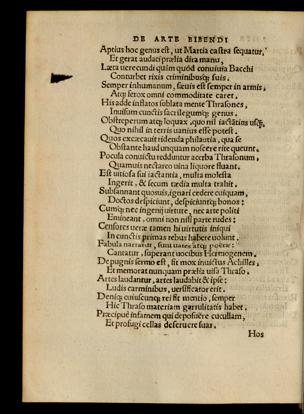 DE ARTE BIBENDI
Aptius hoc genus est, ut Martia castra sequatur,
Et gerat audaci prælia dira manu,
Læta uerecundi quàm quòd conuiuia Bacchi
Conturbet rixis criminibusq́; suis.
Semper inhumanum, sæuis est semper in armis,
Atq́; ferox omni commoditate caret.
His adde inflatos sublata mente Thrasones,
Inuisum cunctis sacrilegumq́; genus.
Obstreperum atq́; loquax, quo nil iactatius usq́,
Quo nihil in terris uanius esse potest.
Quos excæcauit ridenda philautia, quæ se
Obstante haud unquam noscere rite queunt.
Pocula conuictu redduntur acerba Thrasonum,
Quamuis nectareo uina liquore fluant.
Est uitiosa sui iactantia, multa molesta
Ingerit, & secum tædia multa trahit.
Subsannant quosuis, ignari cedere cuiquam,
Doctos despiciunt, despiciuntq́; bonos:
Cumq́; nec ingenij uirtute, nec arte politi
Emineant, omni non nisi parte rudes:
Censores ueræ tamen hi uirtutis iniqui
In cunctis primas rebus habere uolunt.
Fabula narratur, sunt uates atq́; poëtæ:
Cantatur, superant uocibus Hermogenem.
De pugnis sermo est, fit mox inuictus Achilles,
Et memorat nunquam prælia uisa Thraso.
Artes laudantur, artes laudabit & ipse:
Ludis carminibus, uersificator erit.
Deniq́; cuiuscunq́; rei fit mentio, semper
Hic Thraso materiam garrulitatis habet.
Præcipuè infamem qui deposuêre cucullam,
Et profugi cellas deseruere suas.
Hos